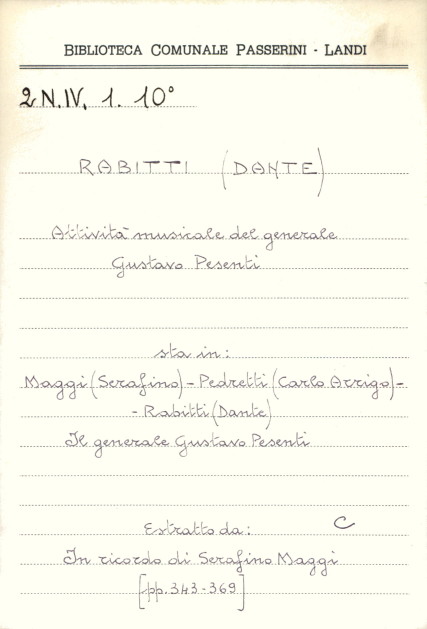 BIBLIOTECA COMUNALE PASSERINI - LANDI
2 N.IV. 1. 10°
RABITTI (DANTE)
Attività musicale del generale
Gustavo Pesenti
sta in:
Maggi (Serafino) - Pedretti (Carlo Arrigo) -
- Rabitti (Dante)
Il generale Gustavo Pesenti
Estratto da: C
In ricordo di Serafino Maggi
[pp. 343-369]